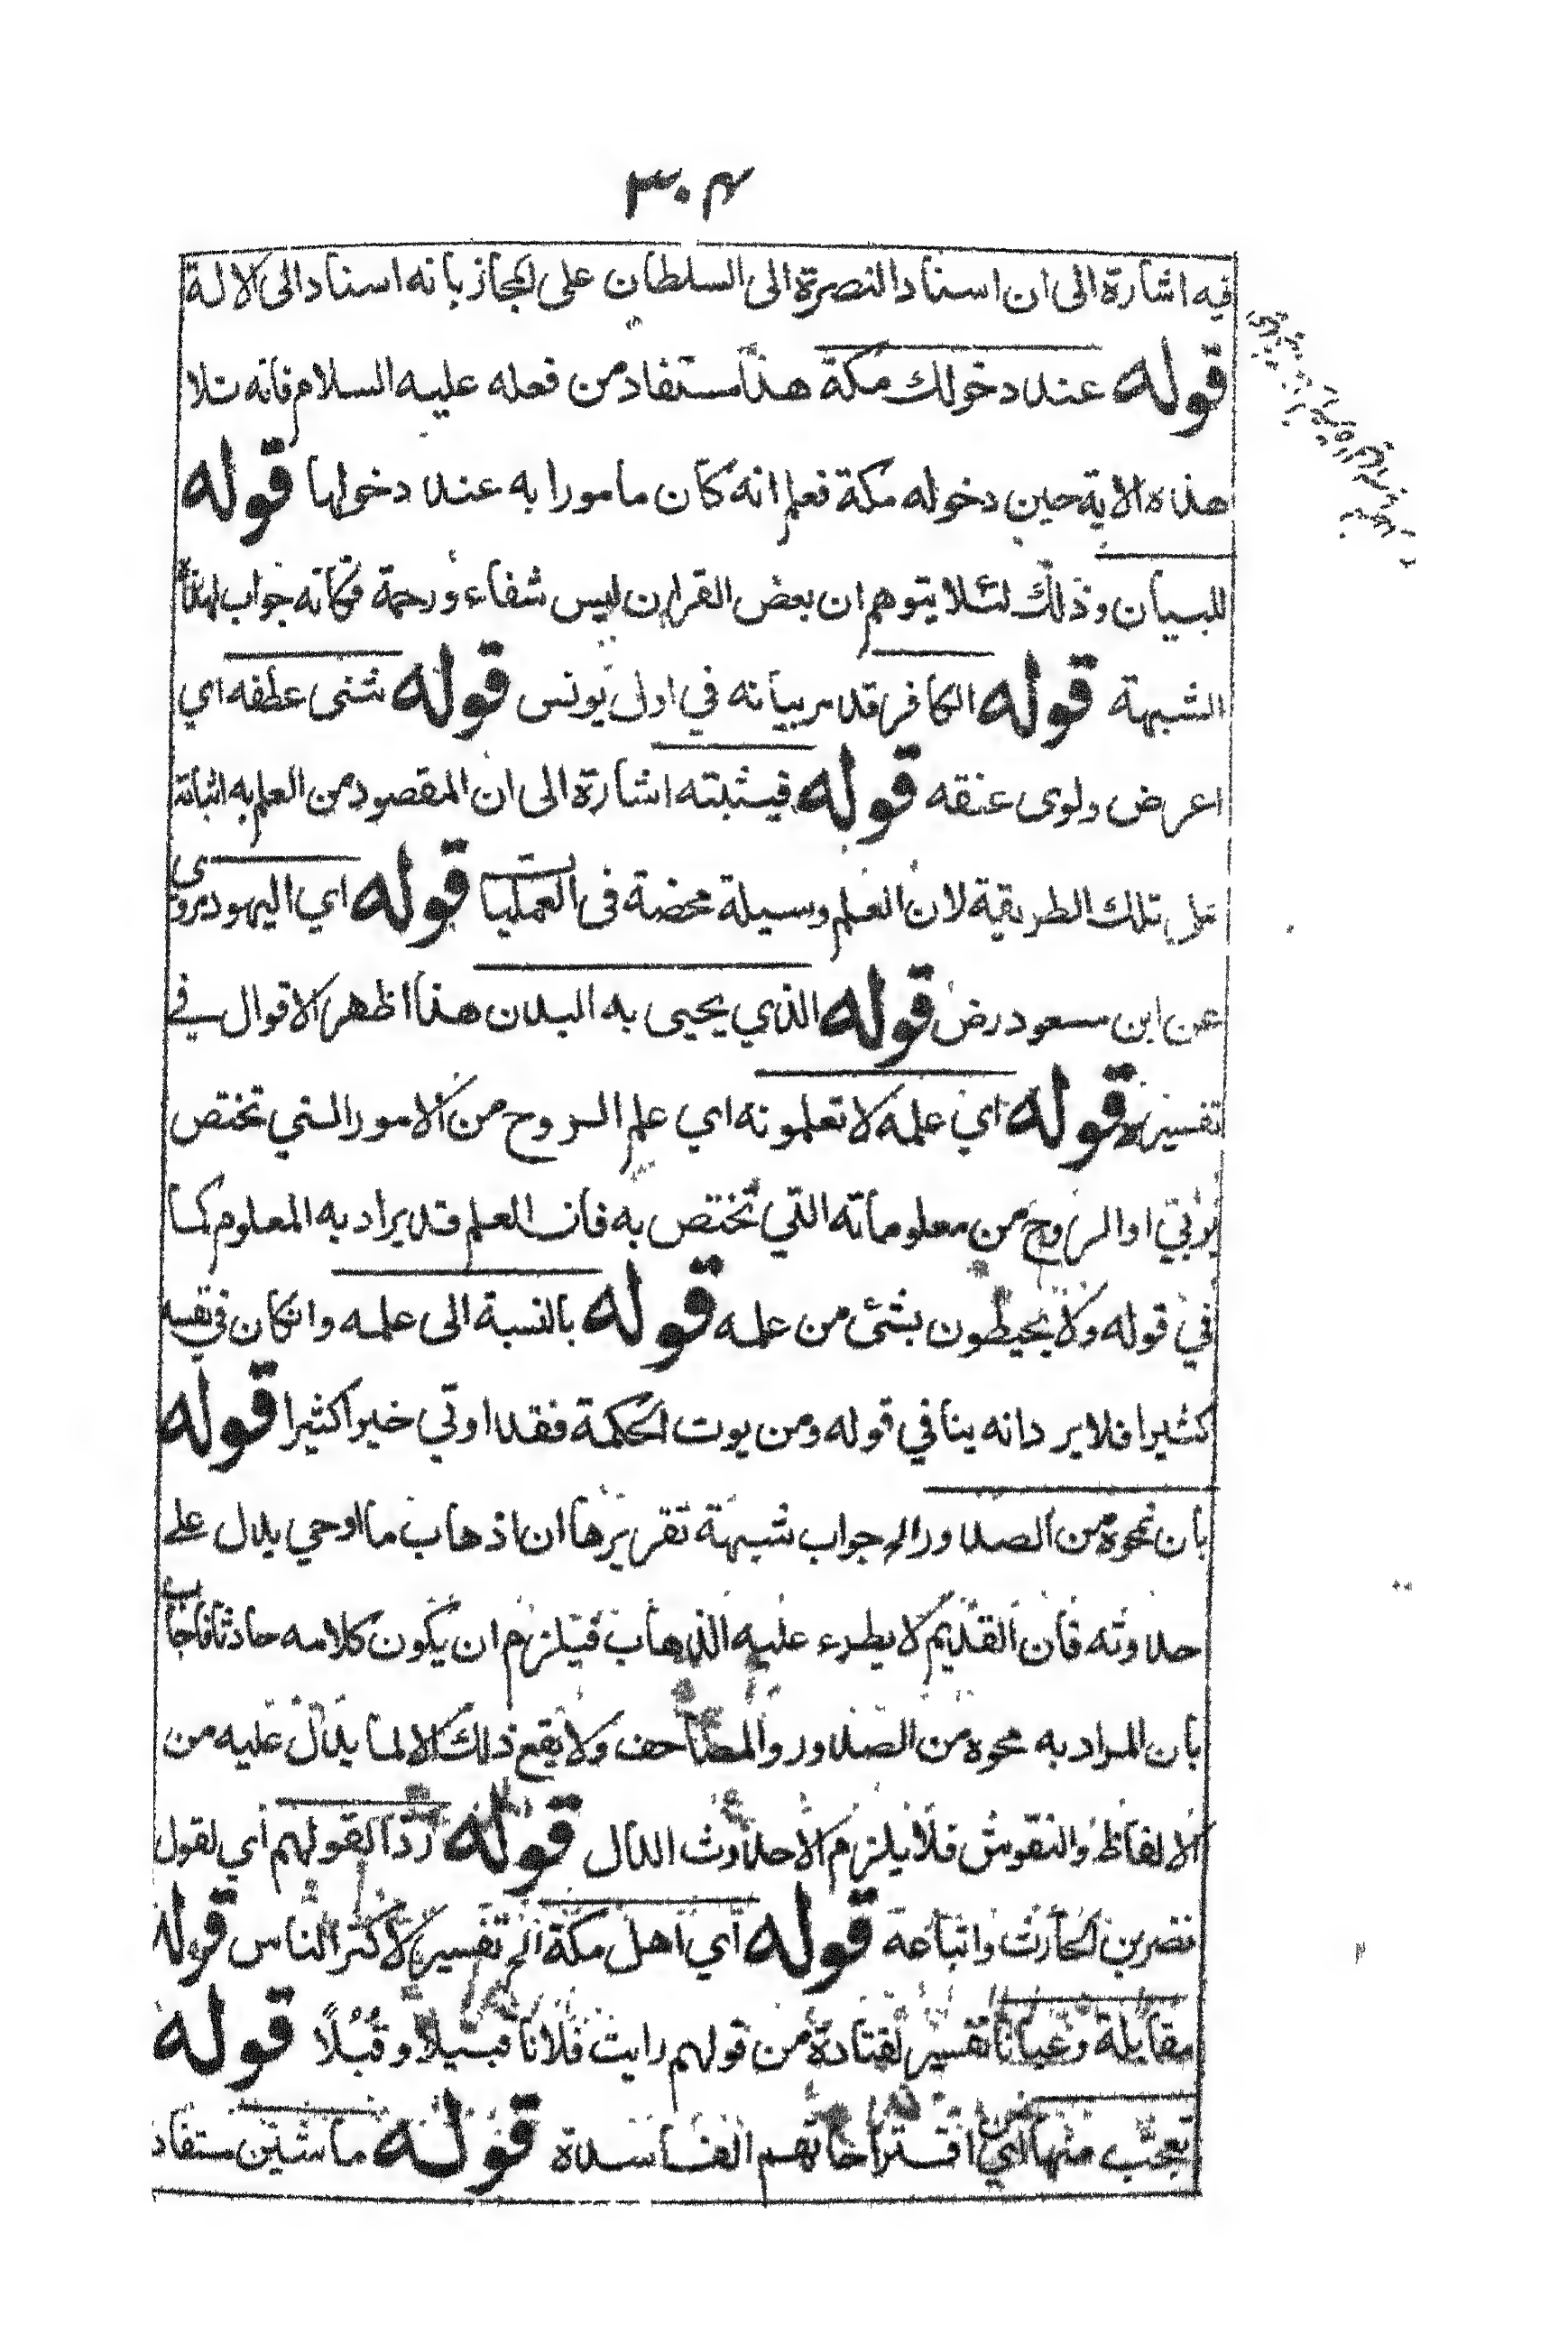 ٣٠٣
فيه اشارة الى ان اسناد النصرة الى السلطان على المجاز بانه اسناد الى الالة
قوله عند دخولك مكة هذا مستفاد من فعله عليه السلام فانه تلا
هذه الاية حين دخوله مكة فعلم انه كان مامورا به عند دخولها قوله
للبيان وذلك لئلا يتوهم ان بعض القران ليس شفاء ورحمة فكانه جواب لهذا
الشبهة قوله الكافر قد مر بيانه في اول يونس قوله ثنى عطفه اي
اعرض ولوى عنقه قوله فيثبته اشارة الى ان المقصود من العلم به اثباته
على تلك الطريقة لان العلم وسيلة محضة فى العمليا قوله اي اليهود مروى
عن ابن مسعود رض قوله الذي يحيى به البدن هذا اظهر الاقوال في
تفسيره قوله اي علمه لا تعلمونه اي علم الروح من الامور التي تختص
بربي او الروح من معلوماته التي تختص به فان العلم قد يراد به المعلوم كما
في قوله ولا يحيطون بشئ من علمه قوله بالنسبة الى علمه وان كان في نفسه
كثيرا فلا يرد انه ينافي قوله ومن يوت الحكمة فقد اوتي خيرا كثيرا قوله
بان نمحوه من الصدور الخ جواب شبهة تقريرها ان اذهاب ما اوحي يدل على
حدوثه فان القديم لا يطرء عليه الذهاب فيلزم ان يكون كلامه حادثا فاجاب
بان المراد به محوه من الصدور والمصاحف ولا يقع ذلك الا لما يدل عليه من
الالفاظ والنقوش فلا يلزم الا حدوث الدال قوله ردا لقولهم اي لقول
نضر بن الحارث واتباعه قوله اي اهل مكة الخ تفسير لاكثر الناس قوله
مقابلة وعيانا تفسير لقتادة من قولهم رايت فلانا قبيلا وقُبُلًا قوله
تعجب منها اي من اقتراحاتهم الفاسدة قوله ماشين ستفاد